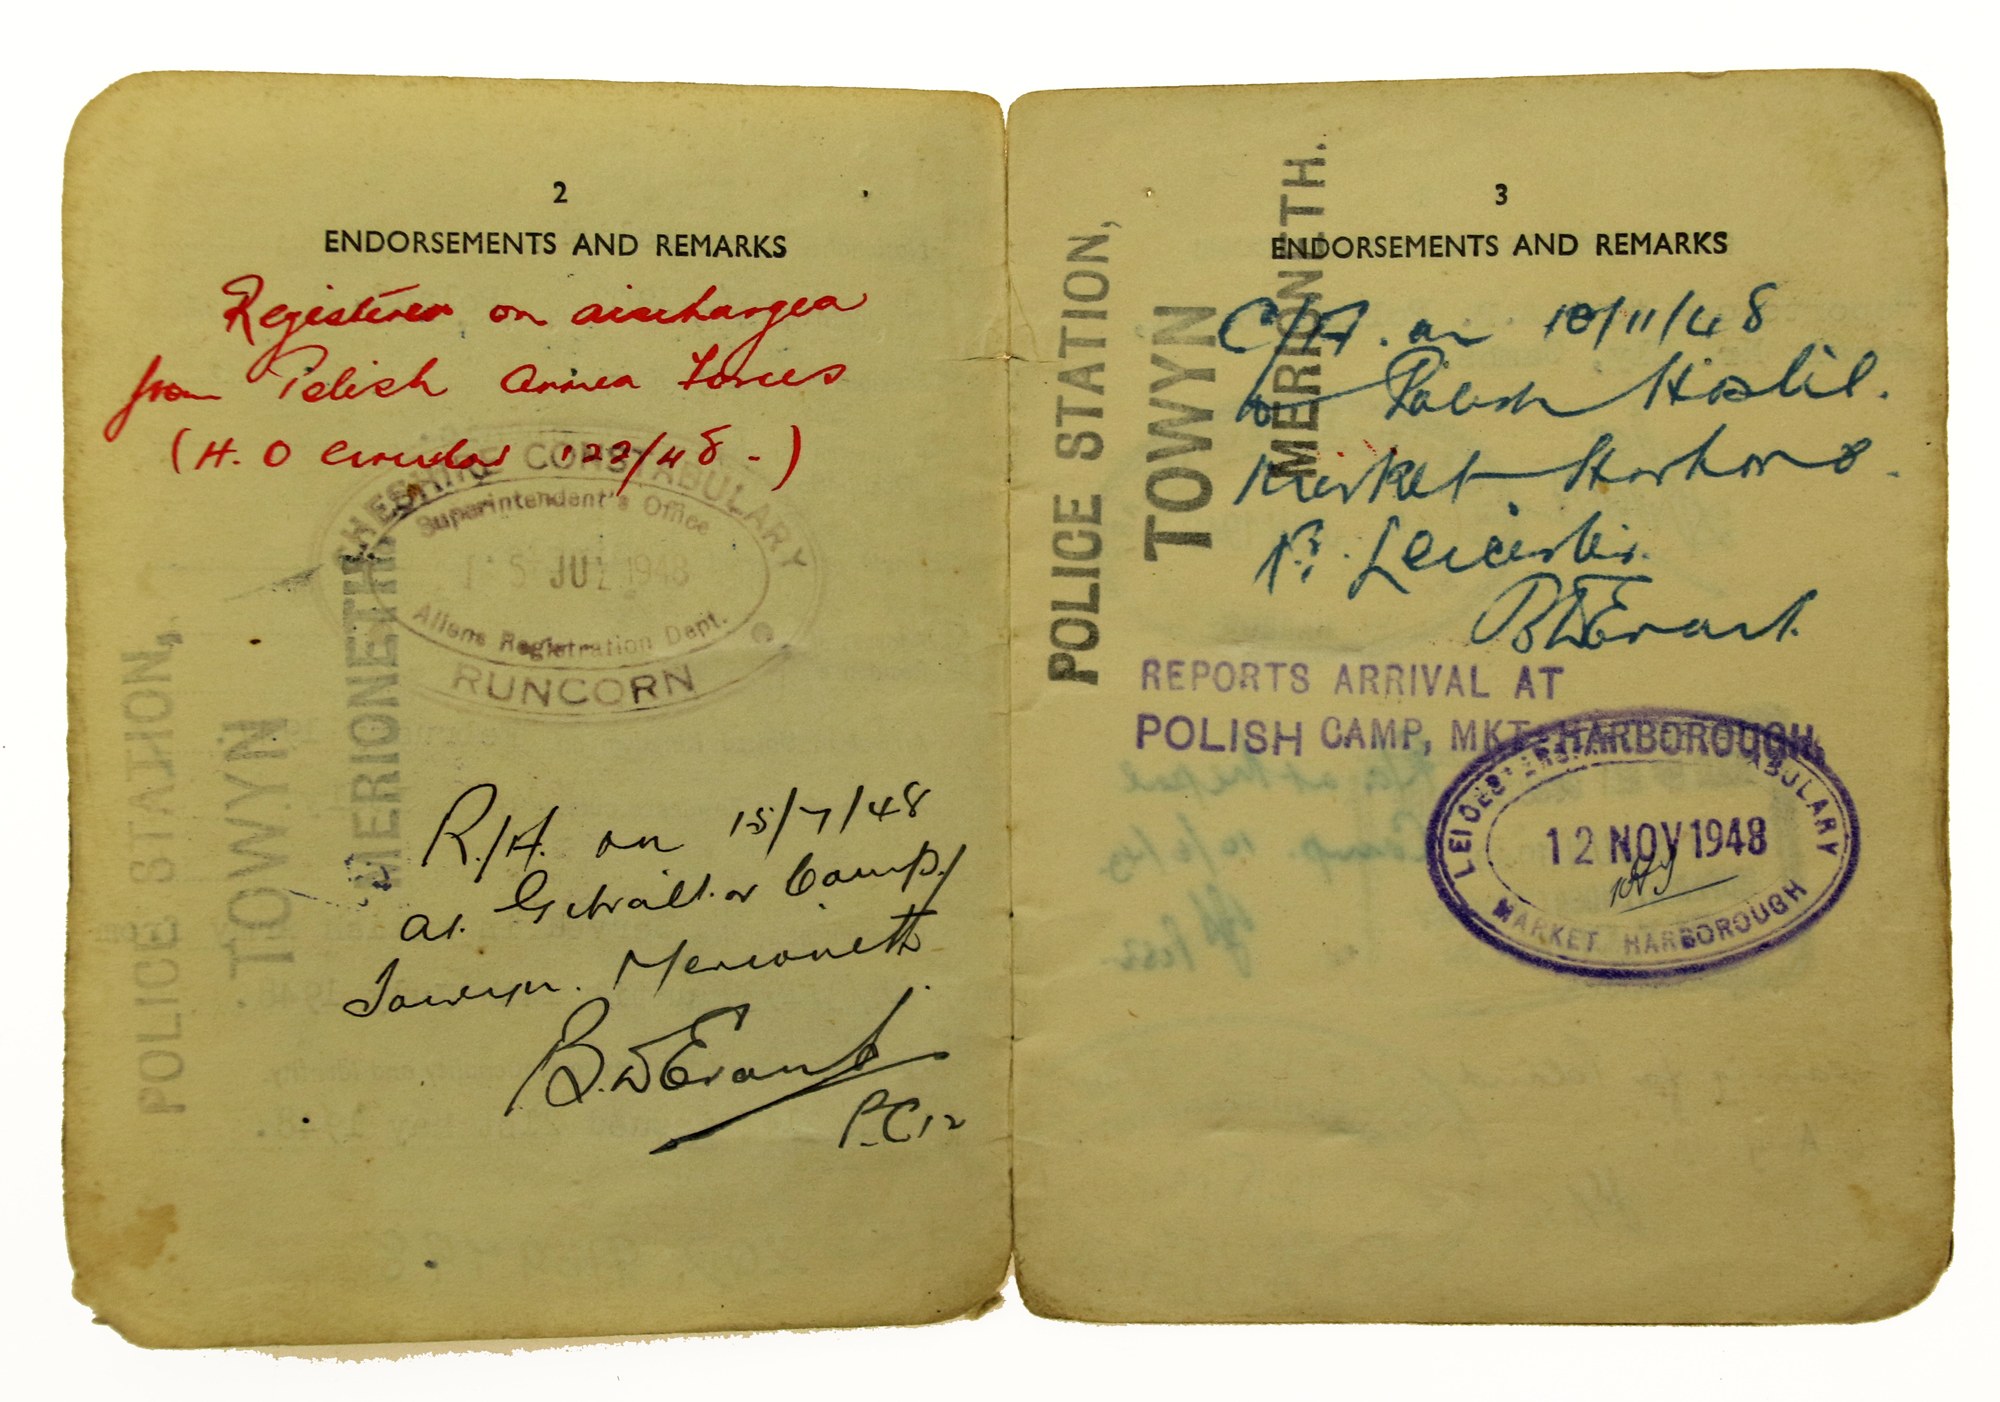 2
ENDORSEMENTS AND REMARKS
Registered on discharged
from Polish Armed Forces
(H.O Circular 122/48-)
CHESHIRE CONSTABULARY
Superintendent's Office
15 JUL 1948
Aliens Registration Dept.
RUNCORN
POLICE STATION,
TOWYN
MERIONETH.
R./A. on 15/7/48
at Gibraltar Camp,
Towyn. Merioneth
B.D Evans
P.C 12
3
ENDORSEMENTS AND REMARKS
POLICE STATION,
TOWYN
MERIONETH.
C/A. on 10/11/48
to Polish Hostel.
Market Harboro.
Nr. Leicester.
BD Evans.
REPORTS ARRIVAL AT
POLISH CAMP, MKT. HARBOROUGH.
LEICESTERSHIRE CONSTABULARY
12 NOV 1948
MARKET HARBOROUGH